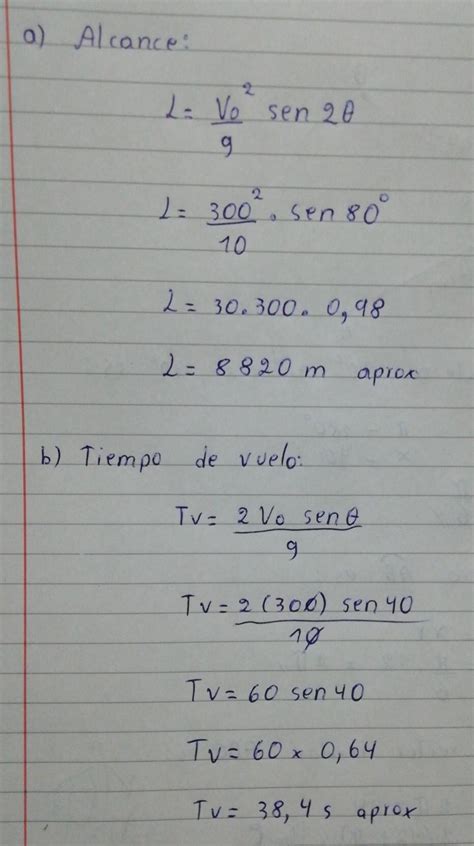 a) Alcance:
L = Vo² sen 2θ
g
L = 300² . sen 80°
10
L = 30.300. 0,98
L = 8820 m aprox
b) Tiempo de vuelo:
Tv = 2 Vo senθ
g
Tv = 2 (300) sen 40
10
Tv = 60 sen 40
Tv = 60 x 0,64
Tv = 38,4 s aprox